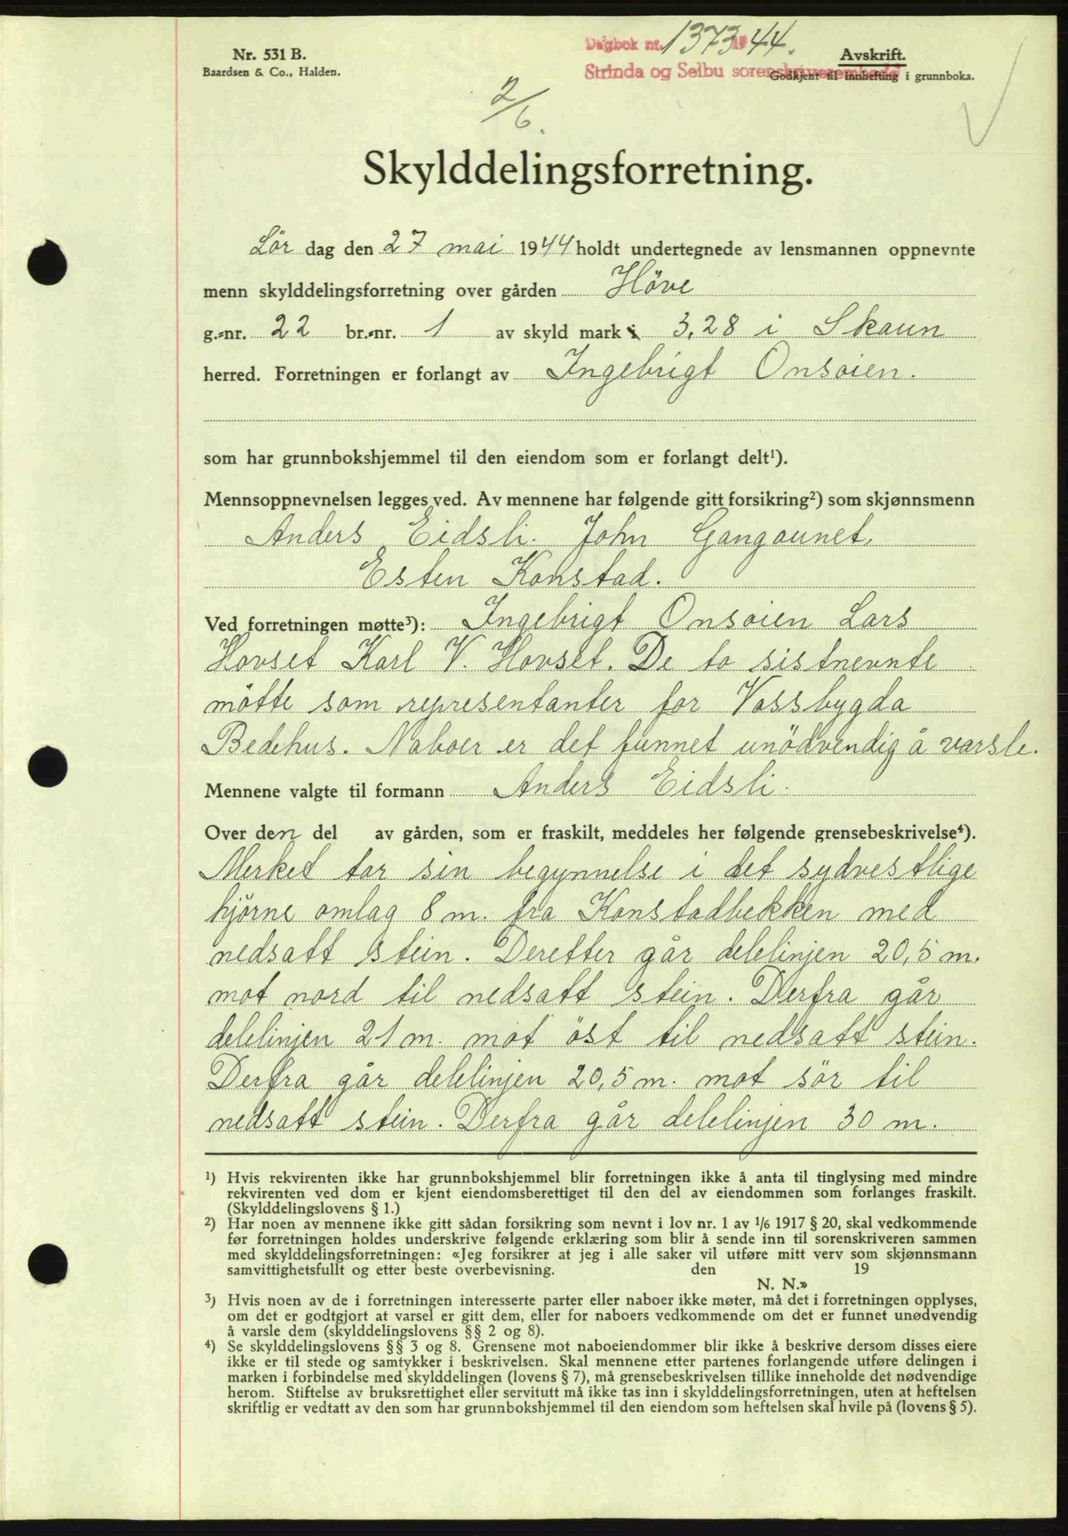 Nr. 531 B.
Baardsen & Co., Halden.
Dagbok nr. 1373 1944.
Strinda og Selbu sorenskriverembede
Avskrift.
Godkjent til innhefting i grunnboka.
2/6.
Skylddelingsforretning.
Lör dag den 27 mai 1944 holdt undertegnede av lensmannen oppnevnte
menn skylddelingsforretning over gården Höve
g.-nr. 22 br.-nr. 1 av skyld mark 3,28 i Skaun
herred. Forretningen er forlangt av Ingebrigt Onsöien.
som har grunnbokshjemmel til den eiendom som er forlangt delt¹).
Mennsoppnevnelsen legges ved. Av mennene har følgende gitt forsikring²) som skjønnsmenn
Anders Eidsli. John Gangaunet,
Esten Konstad.
Ved forretningen møtte³): Ingebrigt Onsöien Lars
Hovset Karl V. Hovset. De to sistnevnte
mötte som representanter for Vassbygda
Bedehus. Naboer er det funnet unödvendig å varsle.
Mennene valgte til formann Anders Eidsli.
Over den del av gården, som er fraskilt, meddeles her følgende grensebeskrivelse⁴).
Merket tar sin begynnelse i det sydvestlige
hjörne omlag 8 m. fra Konstadbekken med
nedsatt stein. Deretter går delelinjen 20,5 m.
mot nord til nedsatt stein. Derfra går
delelinjen 21 m. mot öst til nedsatt stein.
Derfra går delelinjen 20,5 m. mot sör til
nedsatt stein. Derfra går delelinjen 30 m.
¹) Hvis rekvirenten ikke har grunnbokshjemmel blir forretningen ikke å anta til tinglysing med mindre
rekvirenten ved dom er kjent eiendomsberettiget til den del av eiendommen som forlanges fraskilt.
(Skylddelingslovens § 1.)
²) Har noen av mennene ikke gitt sådan forsikring som nevnt i lov nr. 1 av 1/6 1917 § 20, skal vedkommende
før forretningen holdes underskrive følgende erklæring som blir å sende inn til sorenskriveren sammen
med skylddelingsforretningen: «Jeg forsikrer at jeg i alle saker vil utføre mitt verv som skjønnsmann
samvittighetsfullt og etter beste overbevisning. den 19
N. N.»
³) Hvis noen av de i forretningen interesserte parter eller naboer ikke møter, må det i forretningen opplyses,
om det er godtgjort at varsel er gitt dem, eller for naboers vedkommende om det er funnet unødvendig
å varsle dem (skylddelingslovens §§ 2 og 8).
⁴) Se skylddelingslovens §§ 3 og 8. Grensene mot naboeiendommer blir ikke å beskrive dersom disses eiere
ikke er til stede og samtykker i beskrivelsen. Skal mennene etter partenes forlangende utføre delingen i
marken i forbindelse med skylddelingen (lovens § 7), må grensebeskrivelsen tillike inneholde det nødvendige
herom. Stiftelse av bruksrettighet eller servitutt må ikke tas inn i skylddelingsforretningen, uten at heftelsen
skriftlig er vedtatt av den som har grunnbokshjemmel til den eiendom som heftelsen skal hvile på (lovens § 5).